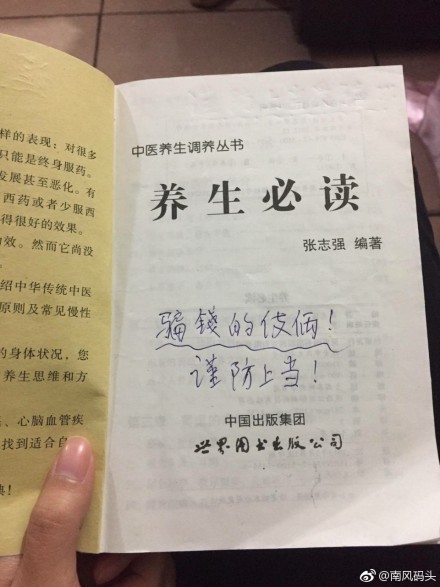 样的表现：对很多
只能是终身服药。
发展甚至恶化。有
西药或者少服西
得很好的效果。
功效。然而它尚没
绍中华传统中医
原则及常见慢性
的身体状况，您
养生思维和方
、心脑血管疾
找到适合自
典！
中医养生调养丛书
养生必读
张志强 编著
骗錢的伎俩！
谨防上当！
中国出版集团
世界图书出版公司
@南风码头